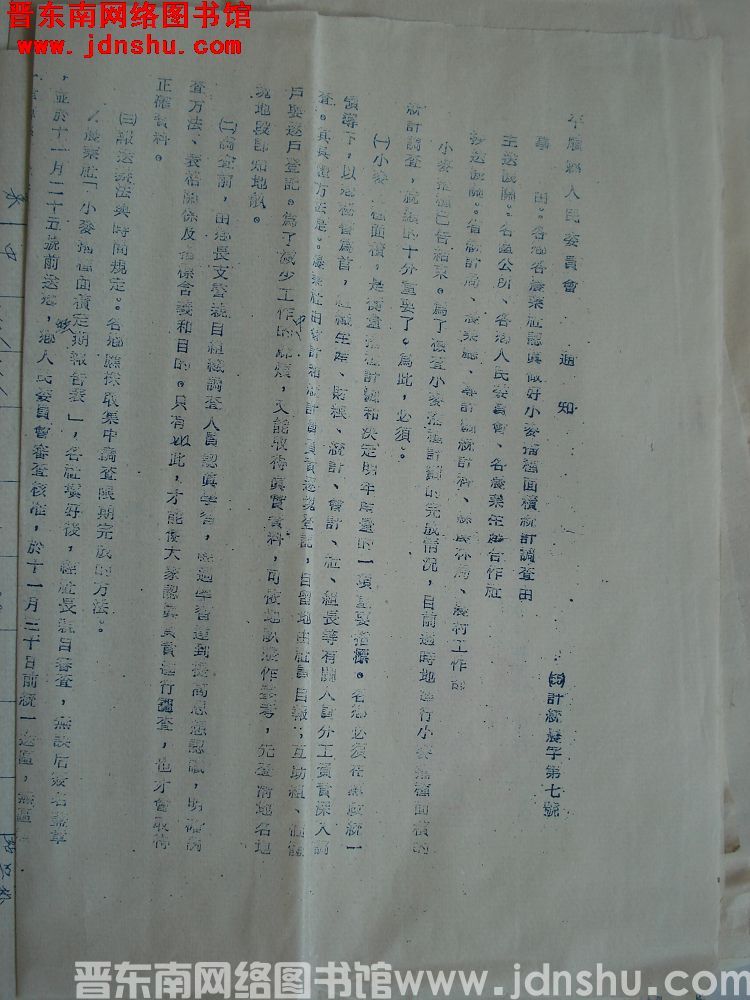 晋东南网络图书馆
www.jdnshu.com
平順縣人民委員會 通知
計統農字第七號
事由。各鄉各農業社認真做好小麥播種面積統計調查由
主送機關。各區公所、各鄉人民委員會、各農業生產合作社
抄送機關。省統計局、農業 計 統計科、 局、農村工作部
小麥播種已告結束。為了檢查小麥播種計劃的完成情況,目前適時地進行小麥播種面積的
統計調查, 的十分重要了。為此,必須。
(一)小麥播種面積,是衡量播種計劃和決定明年產量的一項重要指標。各鄉必須在 統一
領導下,以鄉秘書為首,組織生產、財糧、統計、會計、社、組長等有關人員分工負責深入調
查。其具體方法是。農業社由會計和統計員負責逐塊登記,自留地由社員自報;互助組、個體
戶要逐戶登記。為了減少工作的麻煩,又能取得真實資料,可依地畝 作參考,先查當地名地
塊地段即知地畝。
(二)調查前,由鄉長文書親自組織調查人員認真學習,經過學習達到提高思想認識,明確調
查方法、表格關係及指標含義和目的。只有如此,才能使大家認真負責進行調查,也才會取得
正確資料。
(三)報送辦法與時間規定。各鄉應採取集中調查限期完成的方法。
農業社「小麥播種面積定期報告表」,各社填好後,經社長親自審查,無誤后簽名蓋章
,並於十一月二十五號前送鄉,鄉人民委員會審查核准,於十一月三十日前統一送區,
晋东南网络图书馆www.jdnshu.com